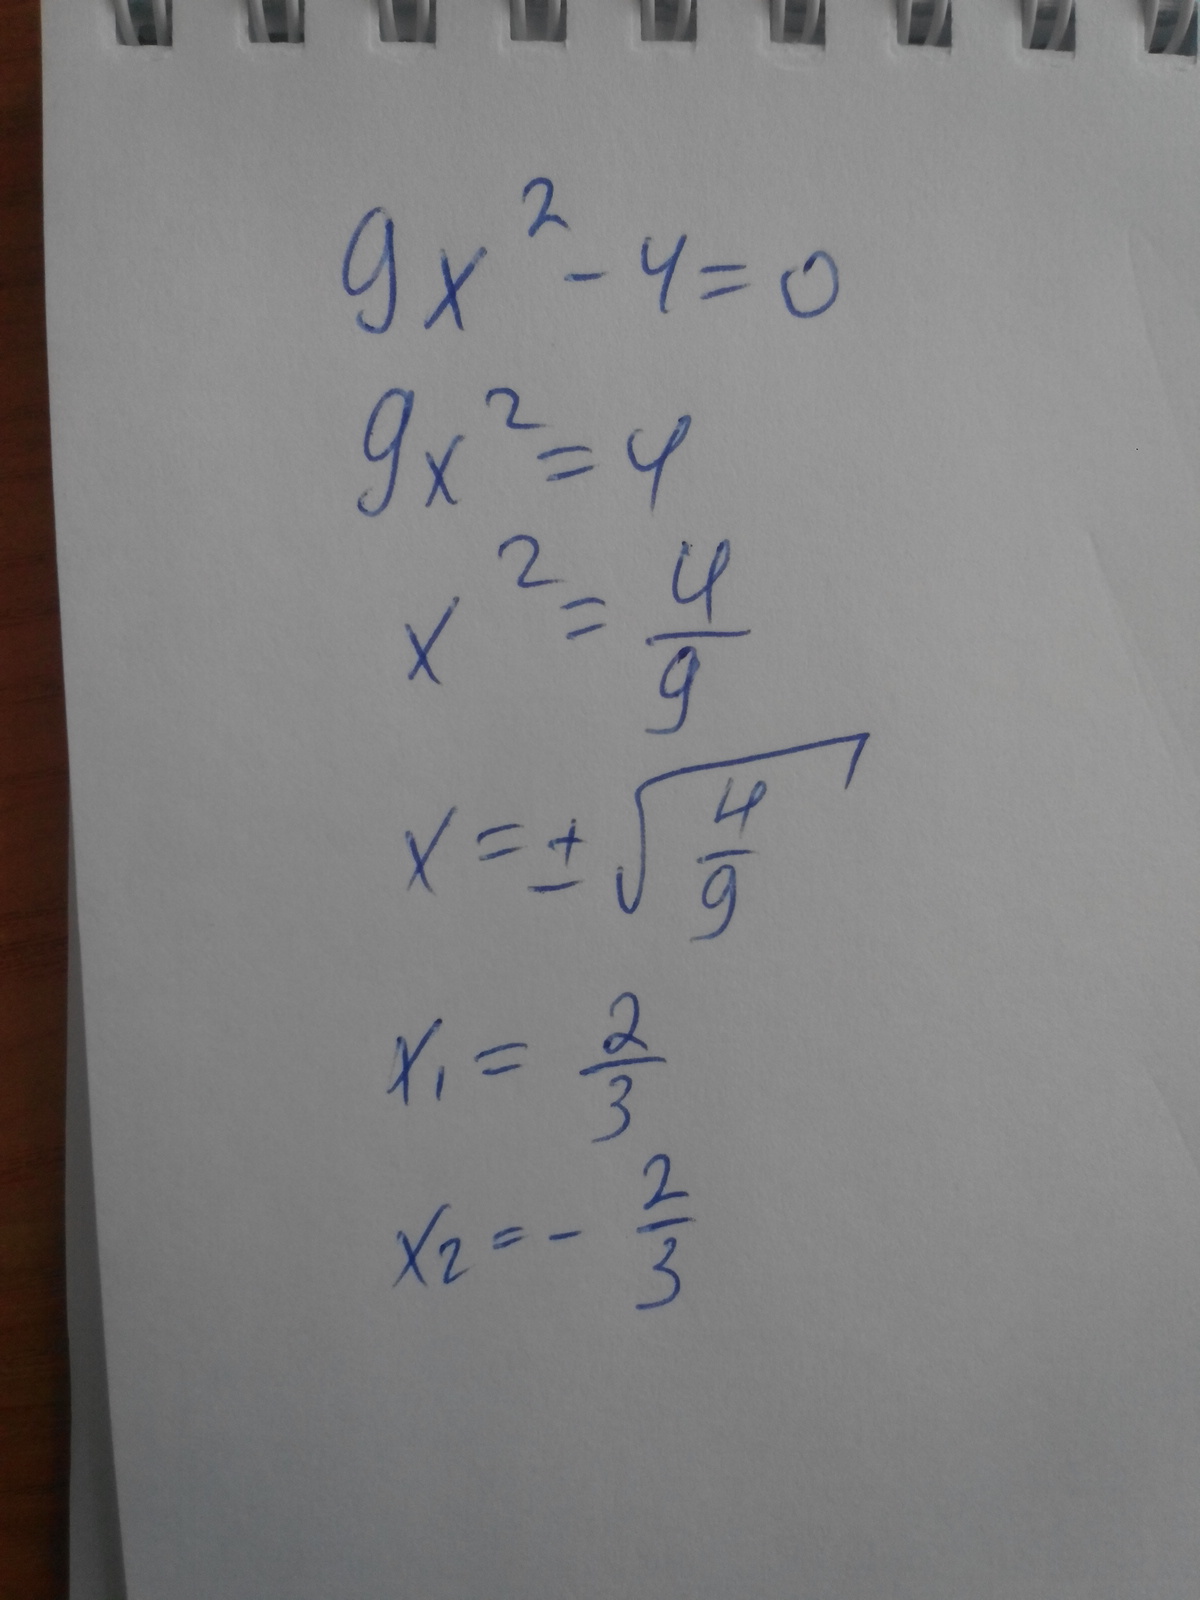 9x² - 4 = 0
9x² = 4
x² = 4/9
x = ± √(4/9)
x₁ = 2/3
x₂ = - 2/3